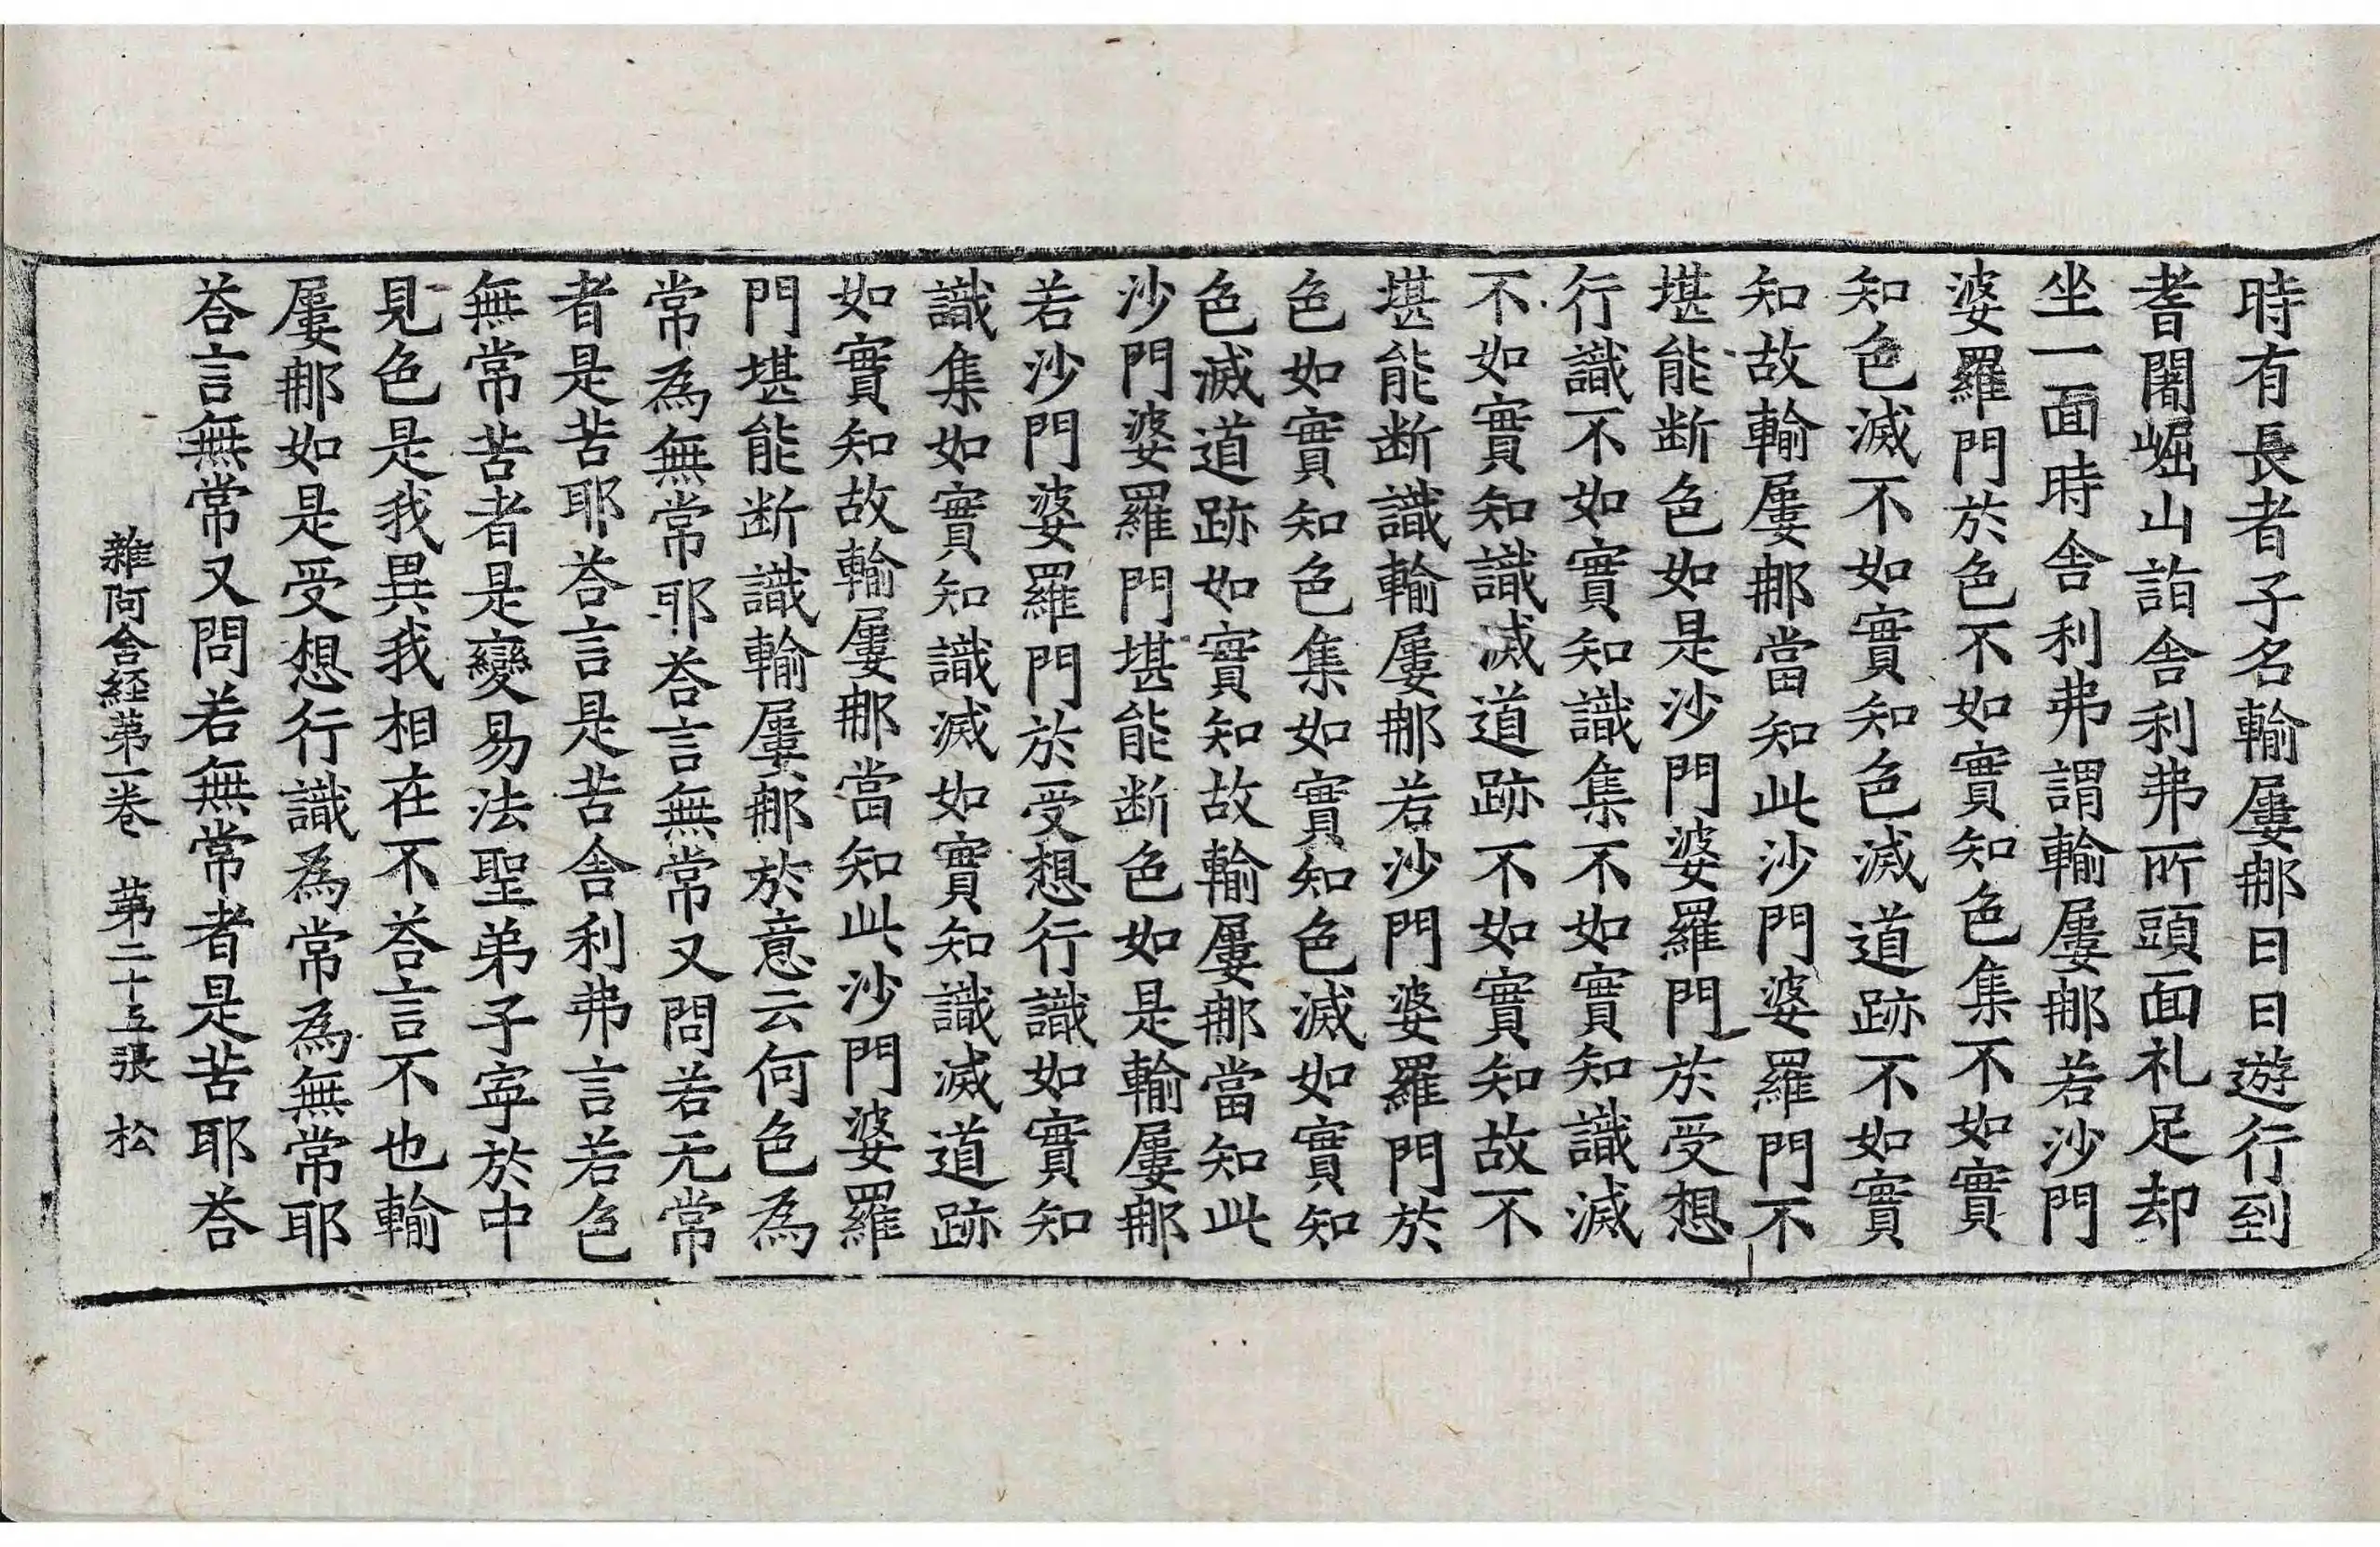 時有長者子名輸屢那日日遊行到
耆闍崛山詣舎利弗所頭面礼足却
坐一面時舎利弗謂輸屢那若沙門
婆羅門於色不如實知色集不如實
知色滅不如實知色滅道跡不如實
知故輸屢那當知此沙門婆羅門不
堪能断色如是沙門婆羅門於受想
行識不如實知識集不如實知識滅
不如實知識滅道跡不如實知故不
堪能断識輸屢那若沙門婆羅門於
色如實知色集如實知色滅如實知
色滅道跡如實知故輸屢那當知此
沙門婆羅門堪能断色如是輸屢那
若沙門婆羅門於受想行識如實知
識集如實知識滅如實知識滅道跡
如實知故輸屢那當知此沙門婆羅
門堪能断識輸屢那於意云何色為
常為無常耶荅言無常又問若无常
者是苦耶荅言是苦舎利弗言若色
無常苦者是變易法聖弟子寜於中
見色是我異我相在不荅言不也輸
屢那如是受想行識為常為無常耶
荅言無常又問若無常者是苦耶荅
雜阿含経第一巻 第二十五張 松